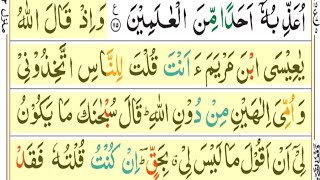 اُعَذِّبُهٗۤ اَحَدًا مِّنَ الْعٰلَمِیْنَ ۝۱۱۵ وَاِذْ قَالَ اللّٰهُ
یٰعِیْسَی ابْنَ مَرْیَمَ ءَاَنْتَ قُلْتَ لِلنَّاسِ اتَّخِذُوْنِیْ
وَاُمِّیَ اِلٰهَیْنِ مِنْ دُوْنِ اللّٰهِ ؕ قَالَ سُبْحٰنَكَ مَا یَكُوْنُ
لِیْۤ اَنْ اَقُوْلَ مَا لَیْسَ لِیْ ۗ بِحَقٍّ ؕ اِنْ كُنْتُ قُلْتُهٗ فَقَدْ